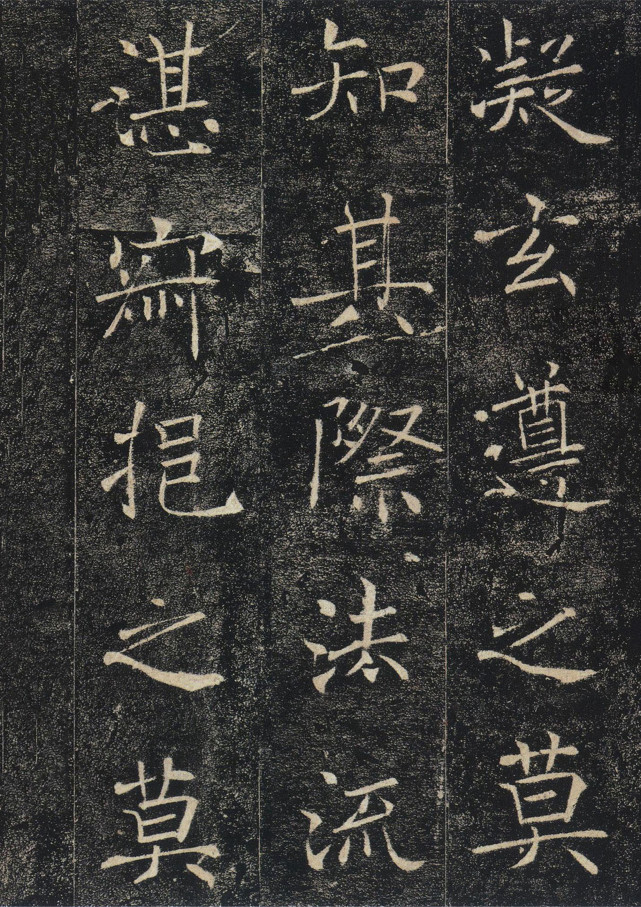 凝玄遵之莫
知其際法流
湛寂挹之莫